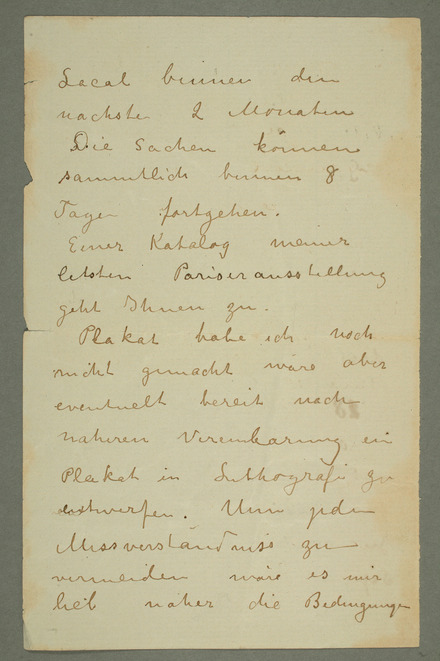 Local binnen den
nachste 2 Monaten
Die Sachen können
sammtlich binnen 8
Tagen fortgehen.
Einer Katalog meiner
letsten Pariserausstellung
geht Ihnen zu.
Plakat habe ich noch
nicht gemacht ware aber
eventuelt bereit nach
naheren Vereinbarung ein
Plakat in Lithografi zu
entwerfen. Um jeden
Missverständniss zu
vermeiden wäre es mir
lieb naher die Bedingungen